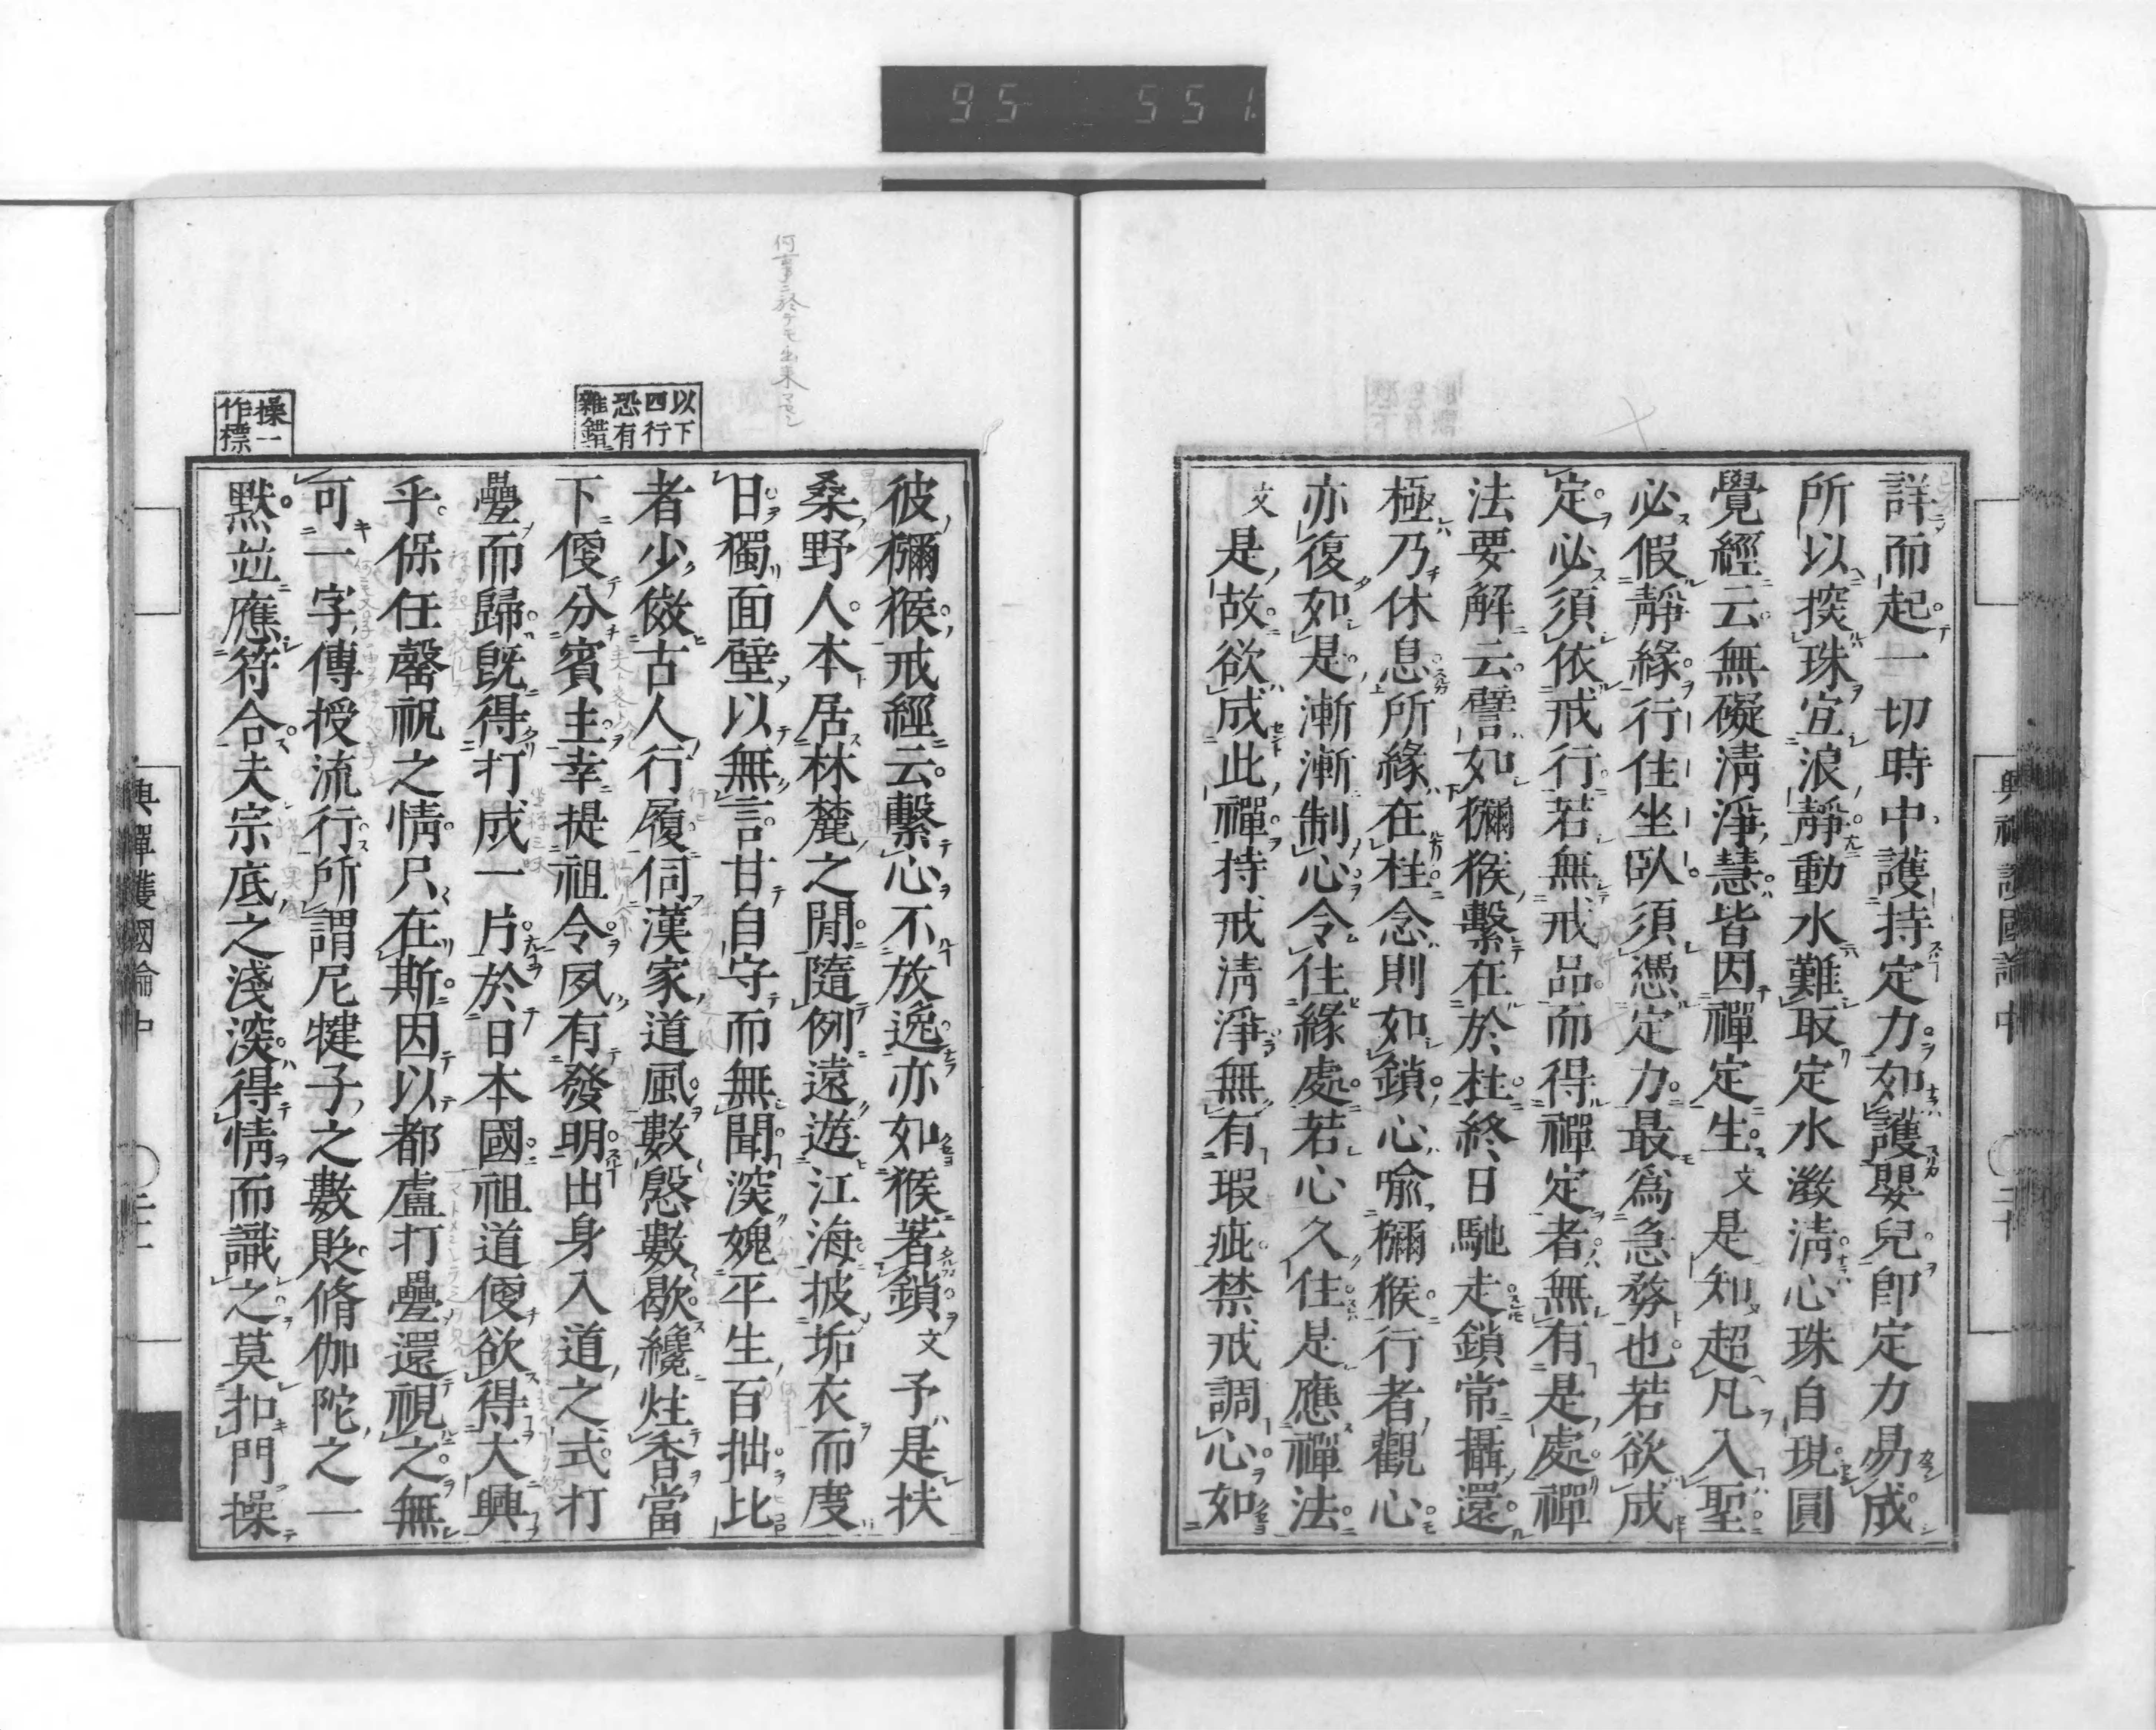 95 551
詳而起一切時中護持定力如護嬰兒即定力易成
所以探珠宜浪靜動水難取定水澂淸心珠自現圓
覺經云無礙淸淨慧皆因禪定生文是知超凡入聖
必假靜緣行住坐臥須憑定力最爲急務也若欲成
定必須依戒行若無戒品而得禪定者無有是處禪
法要解云譬如獼猴繫在於柱終日馳走鎖常攝還
極乃休息所緣在柱念則如鎖心喩獼猴行者觀心
亦復如是漸漸制心令住緣處若心久住是應禪法
文是故欲成此禪持戒淸淨無有瑕疵禁戒調心如
興禪護國論中 二十
何事ニ於テモ出来マセン
以下
四行
恐有
雜錯
操一
作標
彼獼猴戒經云繫心不放逸亦如猴著鎖文予是扶
桑野人本居林麓之閒隨例遠遊江海披垢衣而度
日獨面壁以無言甘自守而無聞深媿平生百拙比
者少倣古人行履伺漢家道風數慇數歇纔炷香當
下便分賓主幸提祖令夙有發明出身入道之式打
疊而歸既得打成一片於日本國祖道便欲得大興
乎保任罄祝之情只在斯因以都盧打疊還視之無
可一字傳授流行所謂尼犍子之數敗脩伽陀之一
默並應符合夫宗底之淺深得情而識之莫扣門操
興禪護國論中 二十一